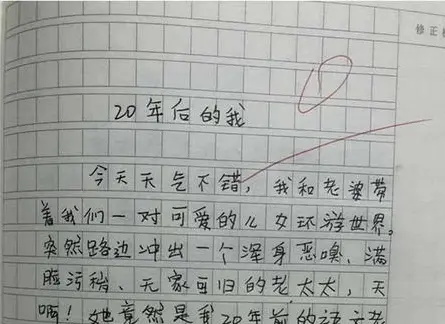 修正
20年后的我
今天天气不错，我和老婆带
着我们一对可爱的儿女环游世界。
突然路边冲出一个浑身恶嗅、满
脸污秽、无家可归的老太太，天
啊！她竟然是我20年前的语文老